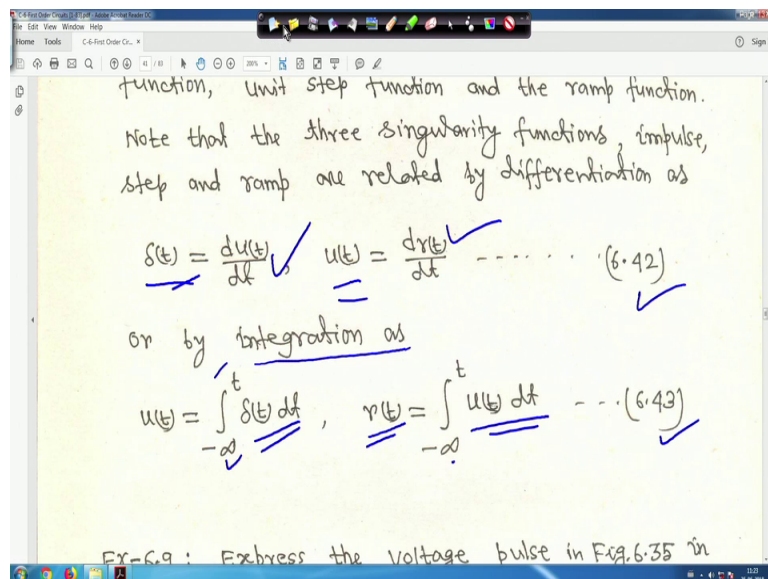 C-6-First Order Circuits [1-83].pdf - Adobe Acrobat Reader DC
File Edit View Window Help
Home Tools C-6-First Order Cir... × Sign
41 / 83 200%
function, unit step function and the ramp function.
Note that the three singularity functions, impulse,
step and ramp are related by differentiation as
δ(t) = du(t)/dt, u(t) = dr(t)/dt ------- (6.42)
or by integration as
u(t) = ∫_{-∞}^{t} δ(t) dt, r(t) = ∫_{-∞}^{t} u(t) dt ---(6.43)
Ex-6.9: Express the voltage pulse in Fig.6.35 in
11:23